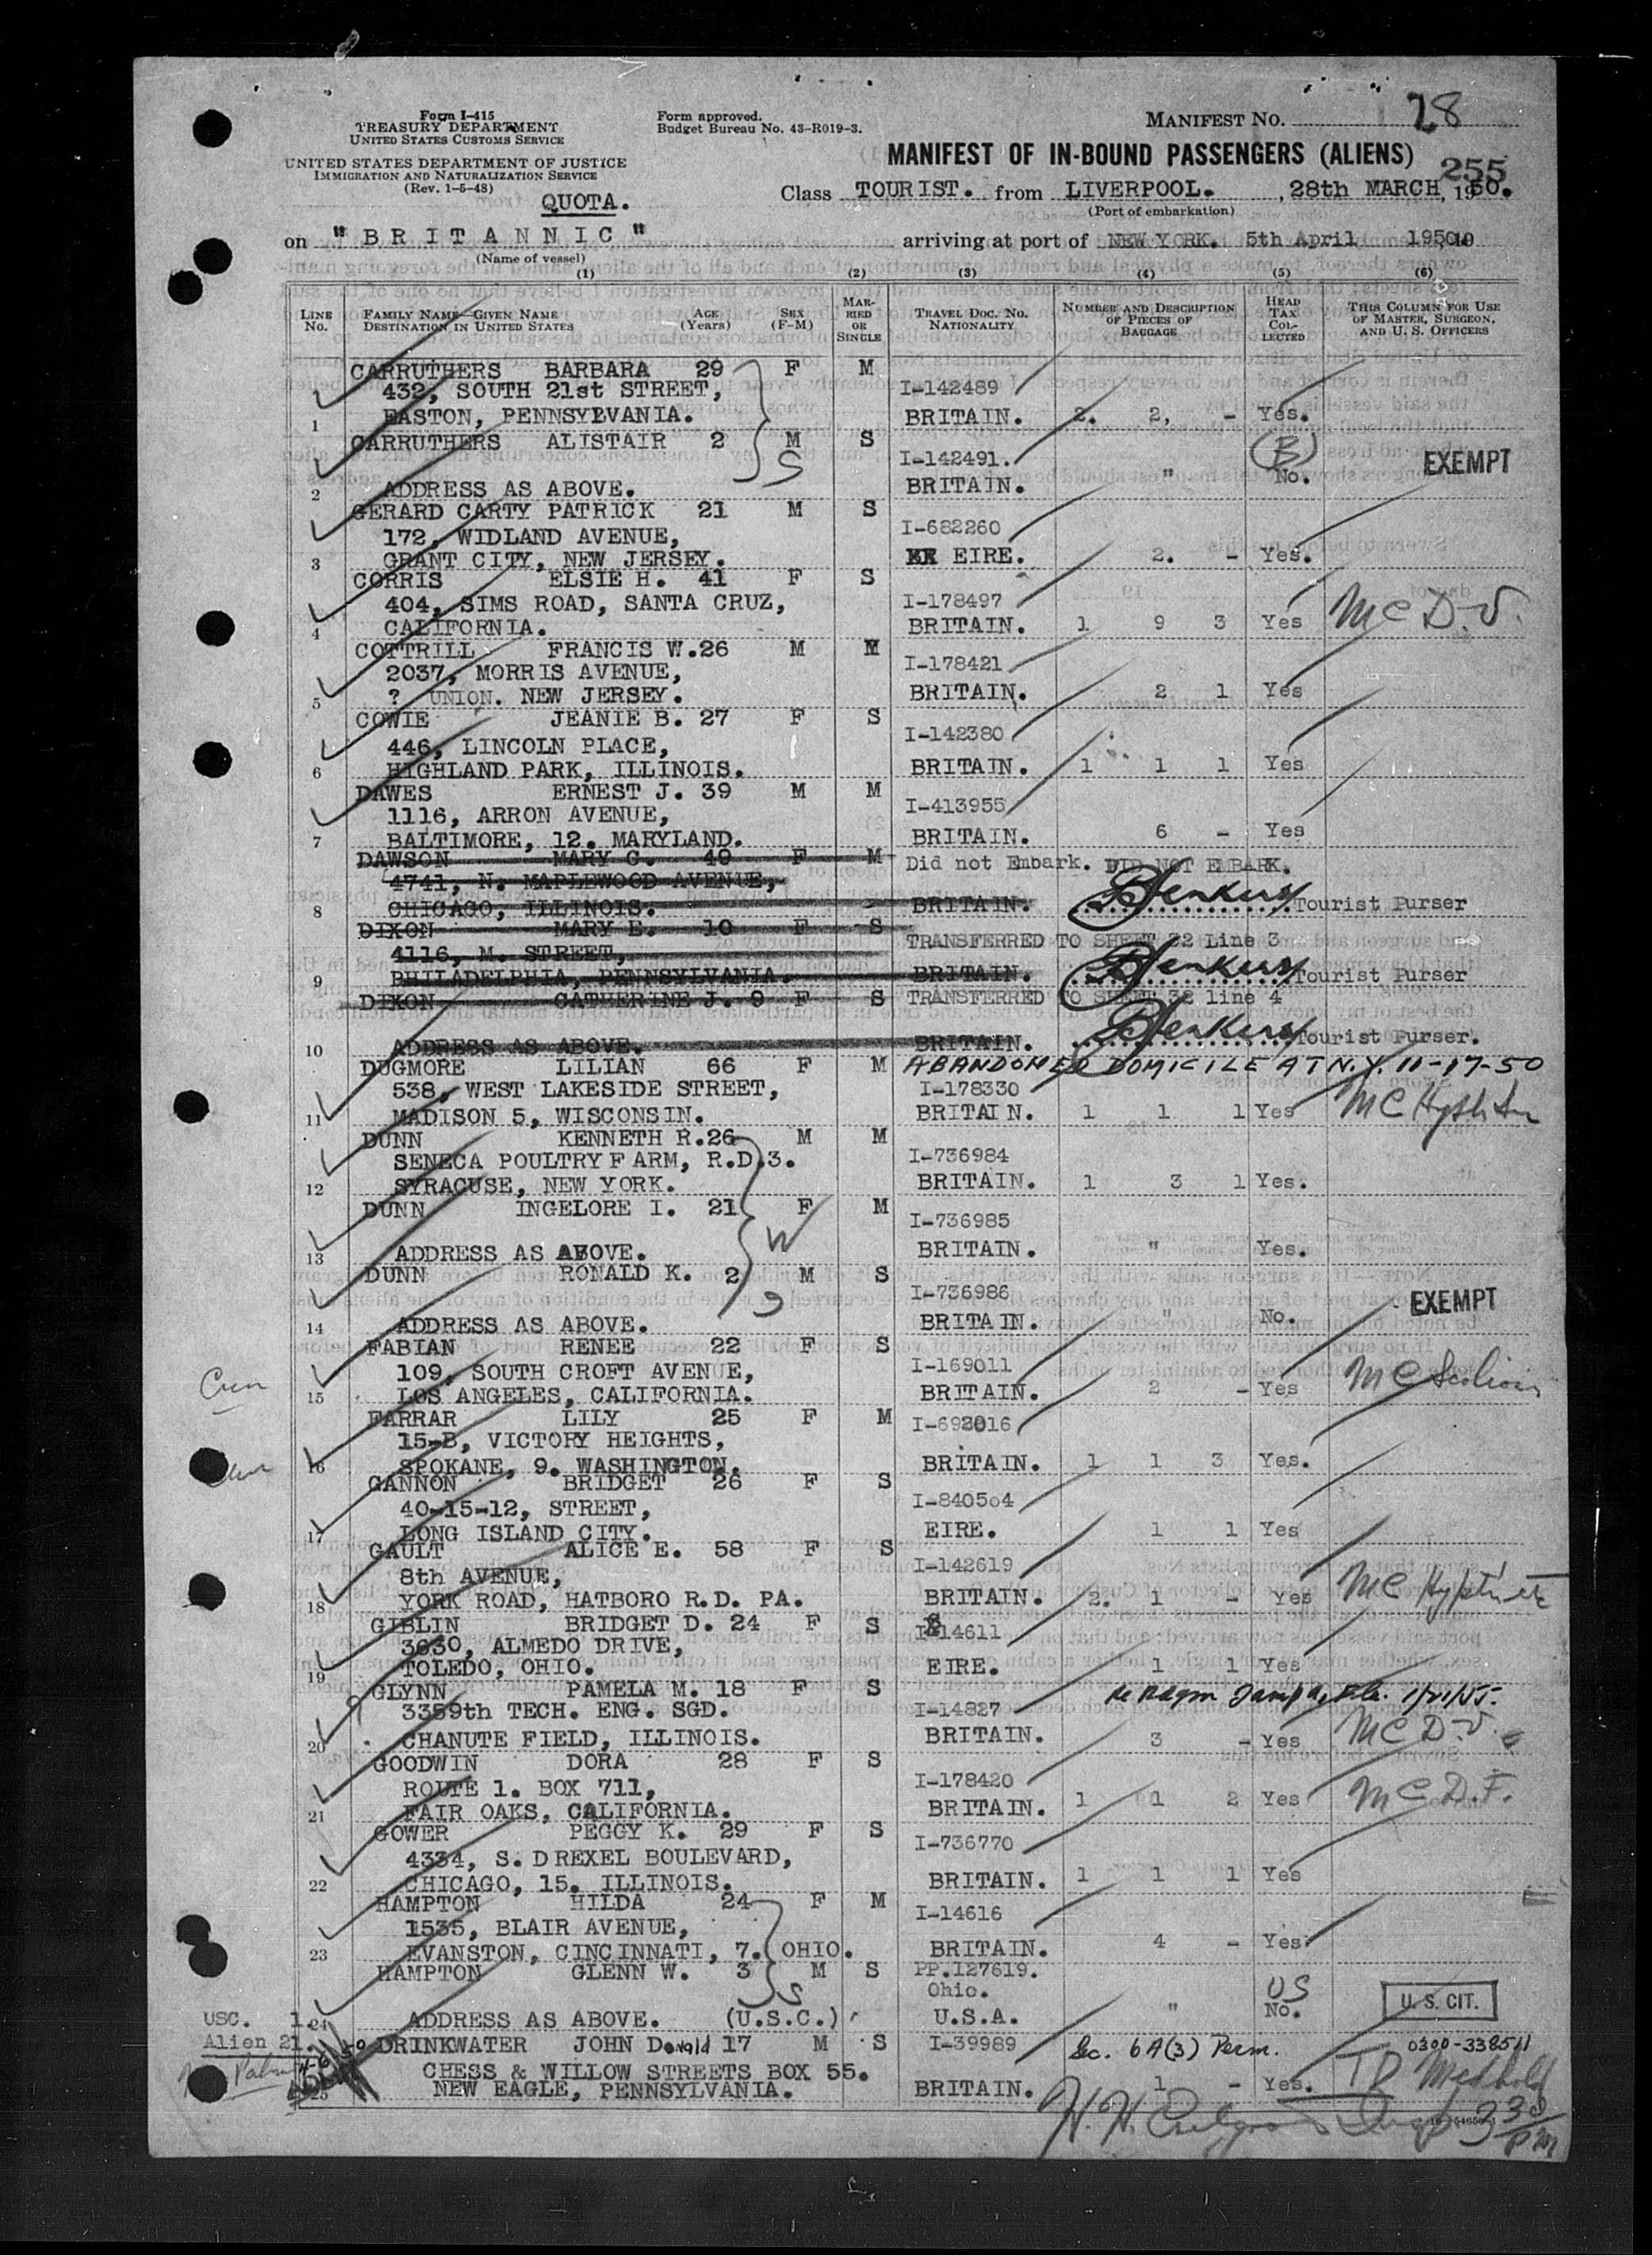 Form I-415
TREASURY DEPARTMENT
UNITED STATES CUSTOMS SERVICE
UNITED STATES DEPARTMENT OF JUSTICE
IMMIGRATION AND NATURALIZATION SERVICE
(Rev. 1-5-48)
QUOTA.
Form approved.
Budget Bureau No. 43-R019-3.
MANIFEST NO. 28
MANIFEST OF IN-BOUND PASSENGERS (ALIENS)
255
Class TOURIST. from LIVERPOOL. , 28th MARCH, 1950.
(Port of embarkation)
on "BRITANNIC" arriving at port of NEW YORK. 5th April 1950.
(Name of vessel)
(1) (2) (3) (4) (5) (6)
LINE No. FAMILY NAME—GIVEN NAME DESTINATION IN UNITED STATES AGE (Years) SEX (F-M) MARRIED OR SINGLE TRAVEL DOC. NO. NATIONALITY NUMBER AND DESCRIPTION OF PIECES OF BAGGAGE HEAD TAX COLLECTED THIS COLUMN FOR USE OF MASTER, SURGEON, AND U. S. OFFICERS
CARRUTHERS BARBARA 29 F M
432, SOUTH 21st STREET, I-142489
1 EASTON, PENNSYLVANIA. BRITAIN. 2. 2, - Yes.
CARRUTHERS ALISTAIR 2 M S
S I-142491. (B) EXEMPT
2 ADDRESS AS ABOVE. BRITAIN. " No.
GERARD CARTY PATRICK 21 M S
172, WIDLAND AVENUE, I-682260
3 GRANT CITY, NEW JERSEY. EIRE. 2. - Yes.
CORRIS ELSIE H. 41 F S
404, SIMS ROAD, SANTA CRUZ, I-178497
4 CALIFORNIA. BRITAIN. 1 9 3 Yes MC D.V.
COTTRILL FRANCIS W. 26 M M
2037, MORRIS AVENUE, I-178421
5 ? UNION. NEW JERSEY. BRITAIN. 2 1 Yes
COWIE JEANIE B. 27 F S
446, LINCOLN PLACE, I-142380
6 HIGHLAND PARK, ILLINOIS. BRITAIN. 1 1 1 Yes
DAWES ERNEST J. 39 M M
1116, ARRON AVENUE, I-413955
7 BALTIMORE, 12. MARYLAND. BRITAIN. 6 - Yes
DAWSON MARY C. 49 F M Did not Embark. DID NOT EMBARK.
4741, N. MAPLEWOOD AVENUE,
8 CHICAGO, ILLINOIS. BRITAIN. Tourist Purser
DIXON MARY E. 10 F S
4116, M. STREET, TRANSFERRED TO SHEET 32 Line 3
9 PHILADELPHIA, PENNSYLVANIA. BRITAIN. Tourist Purser
DIXON CATHERINE J. 9 F S TRANSFERRED TO SHEET 32 line 4
10 ADDRESS AS ABOVE. BRITAIN. Tourist Purser.
DUGMORE LILIAN 66 F M ABANDONED DOMICILE AT N.Y. 11-17-50
538, WEST LAKESIDE STREET, I-178330
11 MADISON 5, WISCONSIN. BRITAIN. 1 1 1 Yes MC
DUNN KENNETH R. 26 M M
SENECA POULTRY FARM, R.D.3. I-736984
12 SYRACUSE, NEW YORK. BRITAIN. 1 3 1 Yes.
DUNN INGELORE I. 21 F M
W I-736985
13 ADDRESS AS ABOVE. BRITAIN. " Yes.
DUNN RONALD K. 2 M S
S I-736986 EXEMPT
14 ADDRESS AS ABOVE. BRITAIN. " No.
FABIAN RENEE 22 F S
109, SOUTH CROFT AVENUE, I-169011
15 LOS ANGELES, CALIFORNIA. BRITAIN. 2 - Yes MC
FARRAR LILY 25 F M
15-B, VICTORY HEIGHTS,
16 SPOKANE, 9. WASHINGTON. BRITAIN. 1 1 3 Yes.
GANNON BRIDGET 26 F S
40-15-12, STREET, I-840504
17 LONG ISLAND CITY. EIRE. 1 1 Yes
GAULT ALICE E. 58 F S
8th AVENUE, I-142619
18 YORK ROAD, HATBORO R.D. PA. BRITAIN. 2. 1 - Yes MC
GIBLIN BRIDGET D. 24 F S
3630, ALMEDO DRIVE, I-14611
19 TOLEDO, OHIO. EIRE. 1 1 Yes
GLYNN PAMELA M. 18 F S
3359th TECH. ENG. SGD. I-14827 Tampa, Fla. 1/21/55.
20 CHANUTE FIELD, ILLINOIS. BRITAIN. 3 - Yes MC D.V.
GOODWIN DORA 28 F S
ROUTE 1. BOX 711, I-178420
21 FAIR OAKS, CALIFORNIA. BRITAIN. 1 1 2 Yes MC D.F.
GOWER PEGGY K. 29 F S
4334, S. DREXEL BOULEVARD, I-736770
22 CHICAGO, 15. ILLINOIS. BRITAIN. 1 1 1 Yes
HAMPTON HILDA 24 F M
1535, BLAIR AVENUE, I-14616
23 EVANSTON, CINCINNATI, 7. OHIO. BRITAIN. 4 - Yes
HAMPTON GLENN W. 3 M S PP.127619.
S Ohio. US U. S. CIT.
USC. 1. 24 ADDRESS AS ABOVE. (U.S.C.) U.S.A. " No.
Alien 21. DRINKWATER JOHN Donald 17 M S I-39989 Sec. 6A(3) Perm. 0300-338511
CHESS & WILLOW STREETS BOX 55. TD Med hold
25 NEW EAGLE, PENNSYLVANIA. BRITAIN. 1 - Yes.
3 30 PM